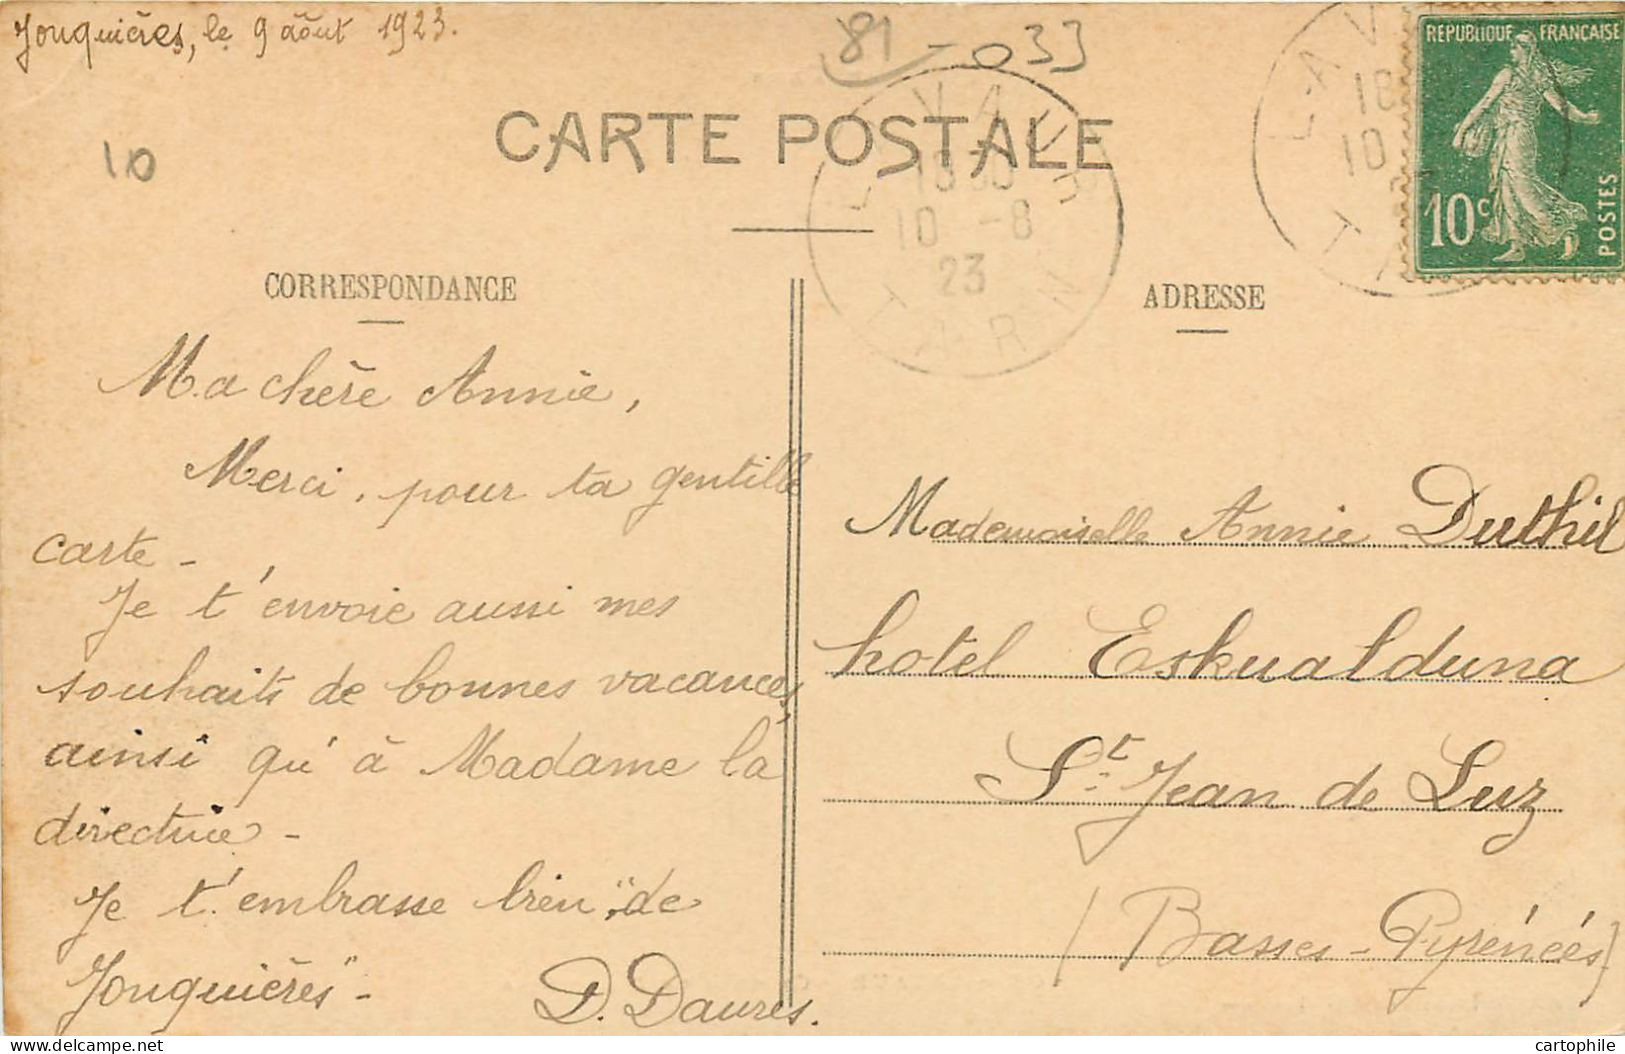 Jouquières, le 9 août 1923.
81 - 033
10
CARTE POSTALE
LAVAUR
18 30
10 -8
23
TARN
LAV
18
10
TA
REPUBLIQUE FRANÇAISE
10c
POSTES
CORRESPONDANCE
Ma chère Annie,
Merci, pour ta gentille
carte -
Je t'envoie aussi mes
souhaits de bonnes vacances,
ainsi qu'à Madame la
directrice -
Je t'embrasse bien "de
Jouquières" -
D. Daures.
ADRESSE
Mademoiselle Annie Duthil
hotel Eskualduna
St. Jean de Luz
(Basses-Pyrénées)
delcampe.net
cartophile